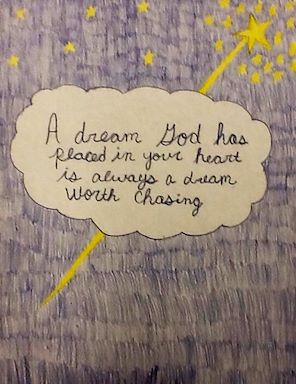 A dream God has
placed in your heart
is always a dream
Worth Chasing